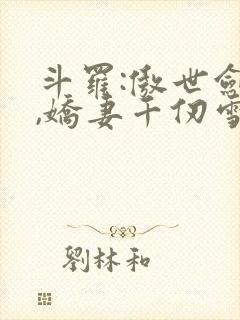 斗羅:傲世劍
,嬌妻千仞雪
劉林和